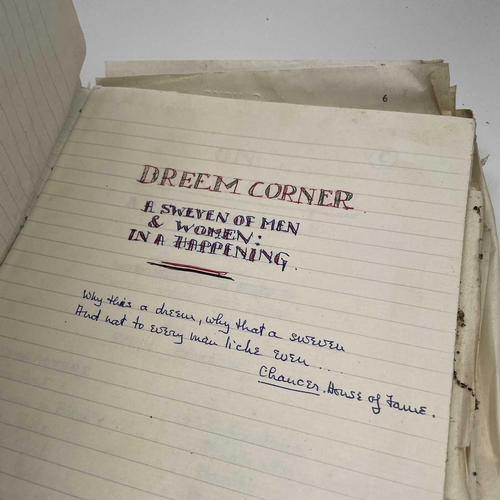 6
DREEM CORNER
A SWEVEN OF MEN
& WOMEN:
IN A HAPPENING.
Why this a dreem, why that a sweven
And not to every man liche even ....
Chaucer. House of Fame.